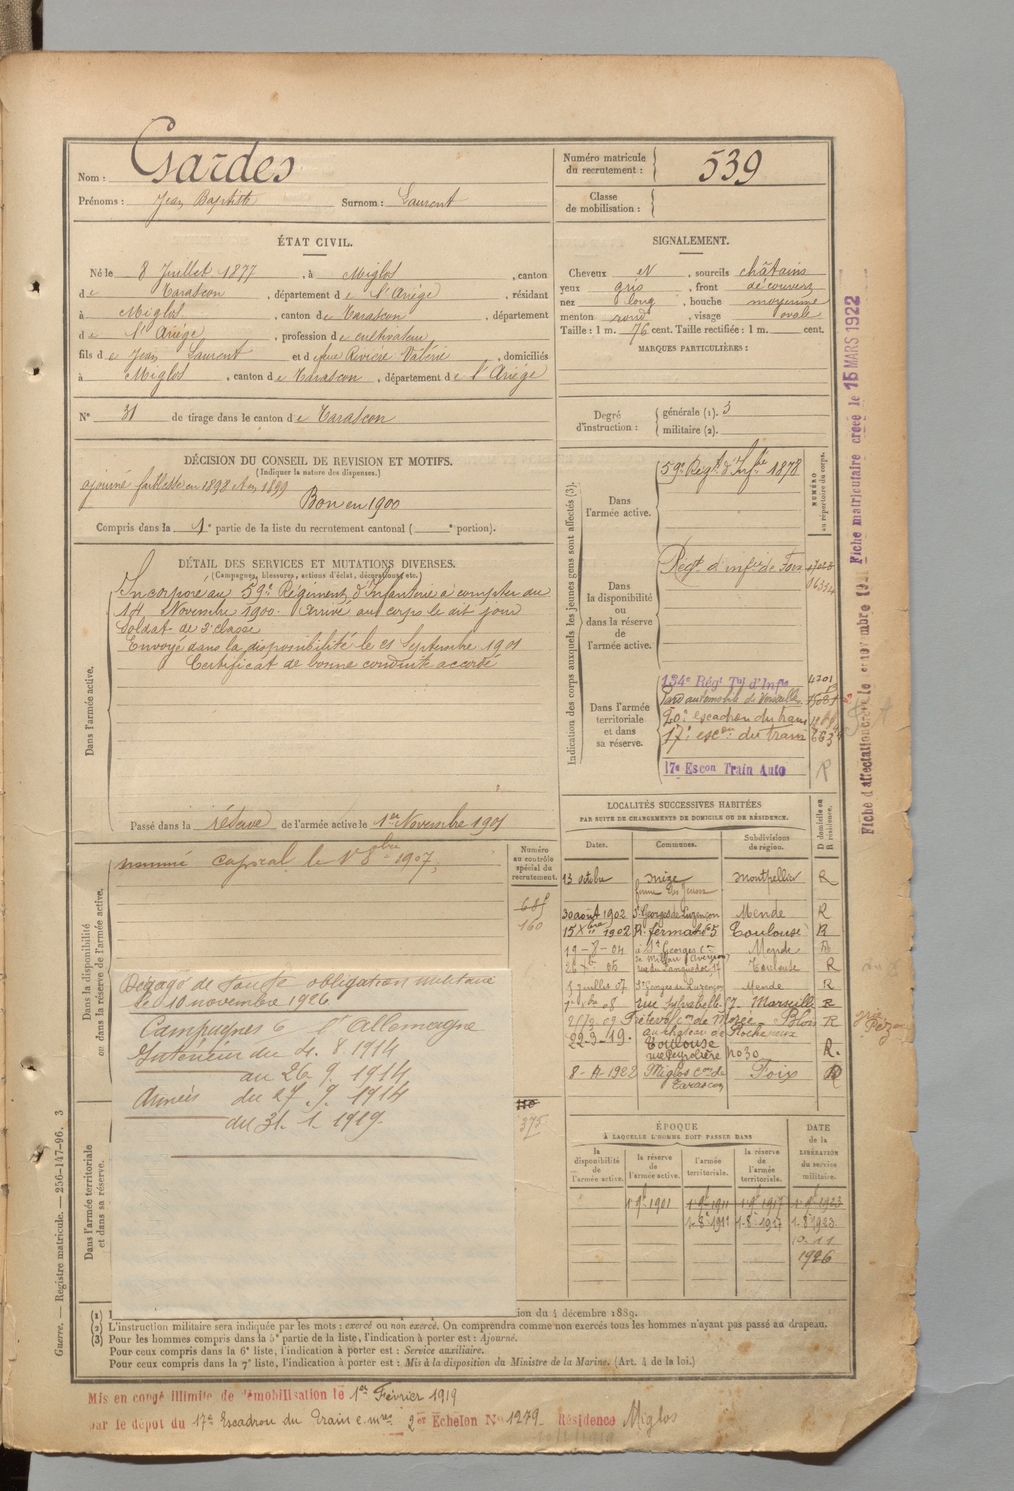 Nom : Gardes
Prénoms : Jean Baptiste Surnom : Laurent
Numéro matricule du recrutement : 539
Classe de mobilisation :
ÉTAT CIVIL.
Né le 8 Juillet 1877, à Miglos, canton
de Tarascon, département de l'Ariège, résidant
à Miglos, canton de Tarascon, département
de l'Ariège, profession de cultivateur,
fils de Jean Laurent et de feue Rivière Valérie, domiciliés
à Miglos, canton de Tarascon, département de l'Ariège
N° 31 de tirage dans le canton de Tarascon
SIGNALEMENT.
Cheveux N, sourcils châtains
yeux gris, front découvert
nez long, bouche moyenne
menton rond, visage ovale
Taille : 1 m. 76 cent. Taille rectifiée : 1 m. cent.
MARQUES PARTICULIÈRES :
Degré d'instruction : générale (1). 3
militaire (2).
DÉCISION DU CONSEIL DE REVISION ET MOTIFS.
(Indiquer la nature des dispenses.)
ajourné faiblesse en 1898 et en 1899
Bon en 1900
Compris dans la 1e partie de la liste du recrutement cantonal ( e portion).
DÉTAIL DES SERVICES ET MUTATIONS DIVERSES.
(Campagnes, blessures, actions d'éclat, décorations, etc.)
Dans l'armée active.
Incorporé au 59e Régiment d'Infanterie à compter du
14 Novembre 1900. Arrivé au corps le dit jour
Soldat de 2e classe
Envoyé dans la disponibilité le 21 Septembre 1901
Certificat de bonne conduite accordé
Passé dans la réserve de l'armée active le 1er Novembre 1901
Indication des corps auxquels les jeunes gens sont affectés (3).
NUMÉRO au répertoire du corps.
Dans l'armée active.
59e Regt d'Infie 1878
Dans la disponibilité ou dans la réserve de l'armée active.
Régt d'infie de Foix
Dans l'armée territoriale et dans sa réserve.
134e Régt Tal d'Infie
Parc automobile de Versailles
20e escadron du train
17e escon du train
17e Escon Train Auto
R
Dans la disponibilité ou dans la réserve de l'armée active.
nommé caporal le 1er 8bre 1907.
Numéro au contrôle spécial du recrutement.
160
375
Dégagé de toute obligation militaire
le 10 novembre 1926
Campagnes c l'Allemagne
Intérieur du 4.8.1914
au 26.9.1914
Armées du 27.9.1914
au 31.1.1919.
Dans l'armée territoriale et dans sa réserve.
LOCALITÉS SUCCESSIVES HABITÉES
PAR SUITE DE CHANGEMENTS DE DOMICILE OU DE RÉSIDENCE.
Dates. Communes. Subdivisions de région. D domicile ou R résidence.
13 octobre Mèze Montpellier R
30 août 1902 St Georges de Luzençon Mende R
15 Xbre 1902 R. Fermat 5 Toulouse R
19-8-04 à St Georges Mende R
de Millau (Aveyron)
05 rue du Languedoc 17 Toulouse R
juillet 07 St Georges de Luzençon Mende R
08 rue Sylvabelle 67 Marseille R
09 Fréteval cne de Morée - Blois R
au château de Rocheux
22-3-19. Toulouse
rue Peyrolière no 30 R.
8-4-1922 Miglos con de Tarascon Foix R
ÉPOQUE
À LAQUELLE L'HOMME DOIT PASSER DANS
la disponibilité de l'armée active. la réserve de l'armée active. l'armée territoriale. la réserve de l'armée territoriale.
DATE de la LIBÉRATION du service militaire.
1er 9bre 1901 1er 9bre 1911 1er 9bre 1917 1er 9bre 1923
1.8.1911 1.8.1917 1.8.1923
10.11
1926
(1)
ion du 4 décembre 1889.
(2) L'instruction militaire sera indiquée par les mots : exercé ou non exercé. On comprendra comme non exercés tous les hommes n'ayant pas passé au drapeau.
(3) Pour les hommes compris dans la 5e partie de la liste, l'indication à porter est : Ajourné.
Pour ceux compris dans la 6e liste, l'indication à porter est : Service auxiliaire.
Pour ceux compris dans la 7e liste, l'indication à porter est : Mis à la disposition du Ministre de la Marine. (Art. 4 de la loi.)
Guerre. — Registre matricule. — 256-147-96. 3
Mis en congé illimité de démobilisation le 1er Février 1919
par le dépôt du 17e Escadron du Train e.m. 2er Echelon N° 1279 Résidence Miglos
Fiche matriculaire créée le 15 MARS 1922